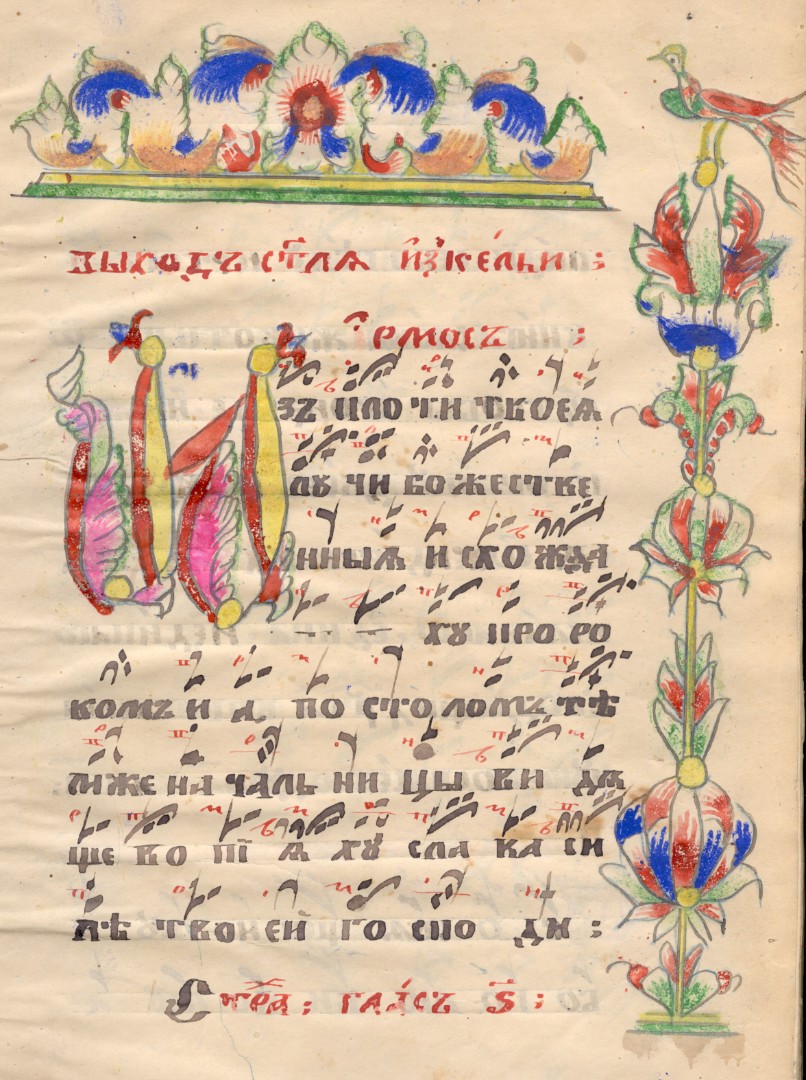 выходъ ст҃лѧ и҆з̾ке́льи :
І҆рмосъ :
Изъ плоти твоеѧ
лу чи божестве
нныѧ и схо жда
ху про ро
комъ и а по сто ломъ тѣ
мже на чаль ни цы ви дѧ
ще во пї ѧ ху сла ва си
лѣ твоей го спо ди :
Стх҃ра ; гла́съ ѕ҃ :